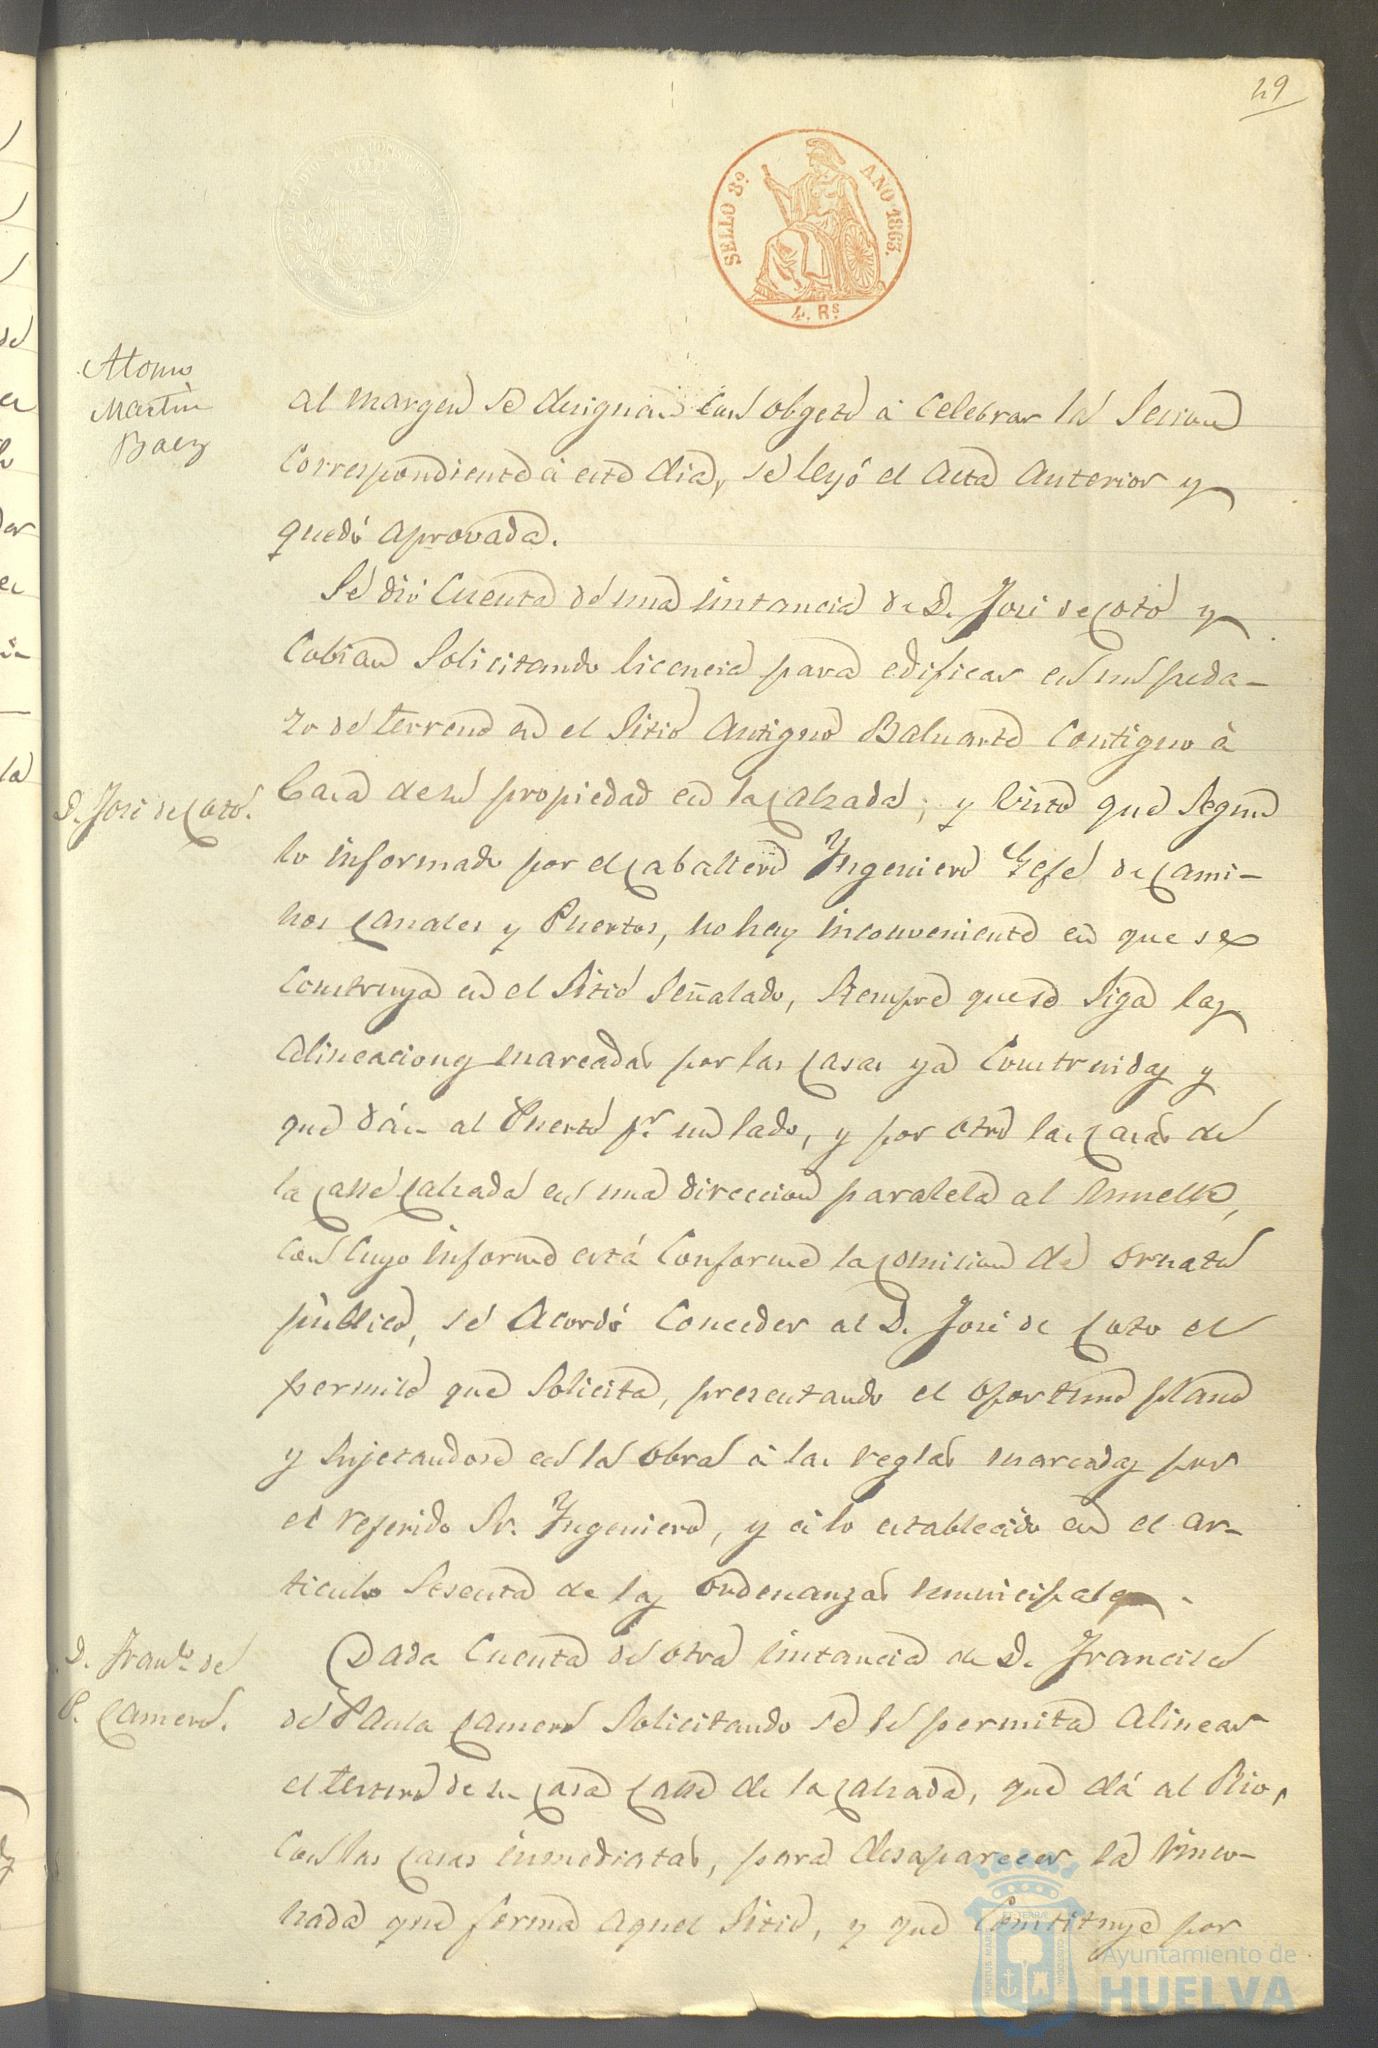 49
SELLO 8º AÑO 1863.
4. Rs
Alonso
Martin
Baez
al margen se designan con obgeto á celebrar la Sesion
correspondiente á este dia, se leyó el acta anterior y
quedó aprovada.
Se dió cuenta de una instancia de D. José de Coto y
Cobian solicitando licencia para edificar en un peda-
zo de terreno en el sitio antiguo Baluarte contiguo á
D. José de Coto.
Casa de su propiedad en la Calzada; y visto que segun
lo informado por el Caballero Yngeniero Gefe de Cami-
nos Canales y Puertos, no hay inconveniente en que se
construya en el sitio señalado, siempre que se siga las
alineaciones marcadas por las casas ya construidas y
que dán al Puerto pr. un lado, y por otro las casas de
la Calle Calzada en una direccion paralela al muelle,
con cuyo informe está conforme la comision de ornato
público, se acordó conceder al D. José de Coto el
permiso que solicita, presentando el oportuno plano
y sujetandose en la obra á las reglas marcadas por
el referido Sr. Yngeniero, y á lo establecido en el ar-
ticulo sesenta de las ordenanzas municipales.
D. Franco. de
P. Camero.
Dada cuenta de otra instancia de D. Francisco
de Paula Camero solicitando se le permita alinear
el testero de su casa Calle de la Calzada, que dá al Rio,
con las casas inmediatas, para desaparecer la rinco-
nada que forma aquel sitio, y que constituye por
PORTUS MARIS ET TERRAE CUSTODIA
Ayuntamiento de
HUELVA